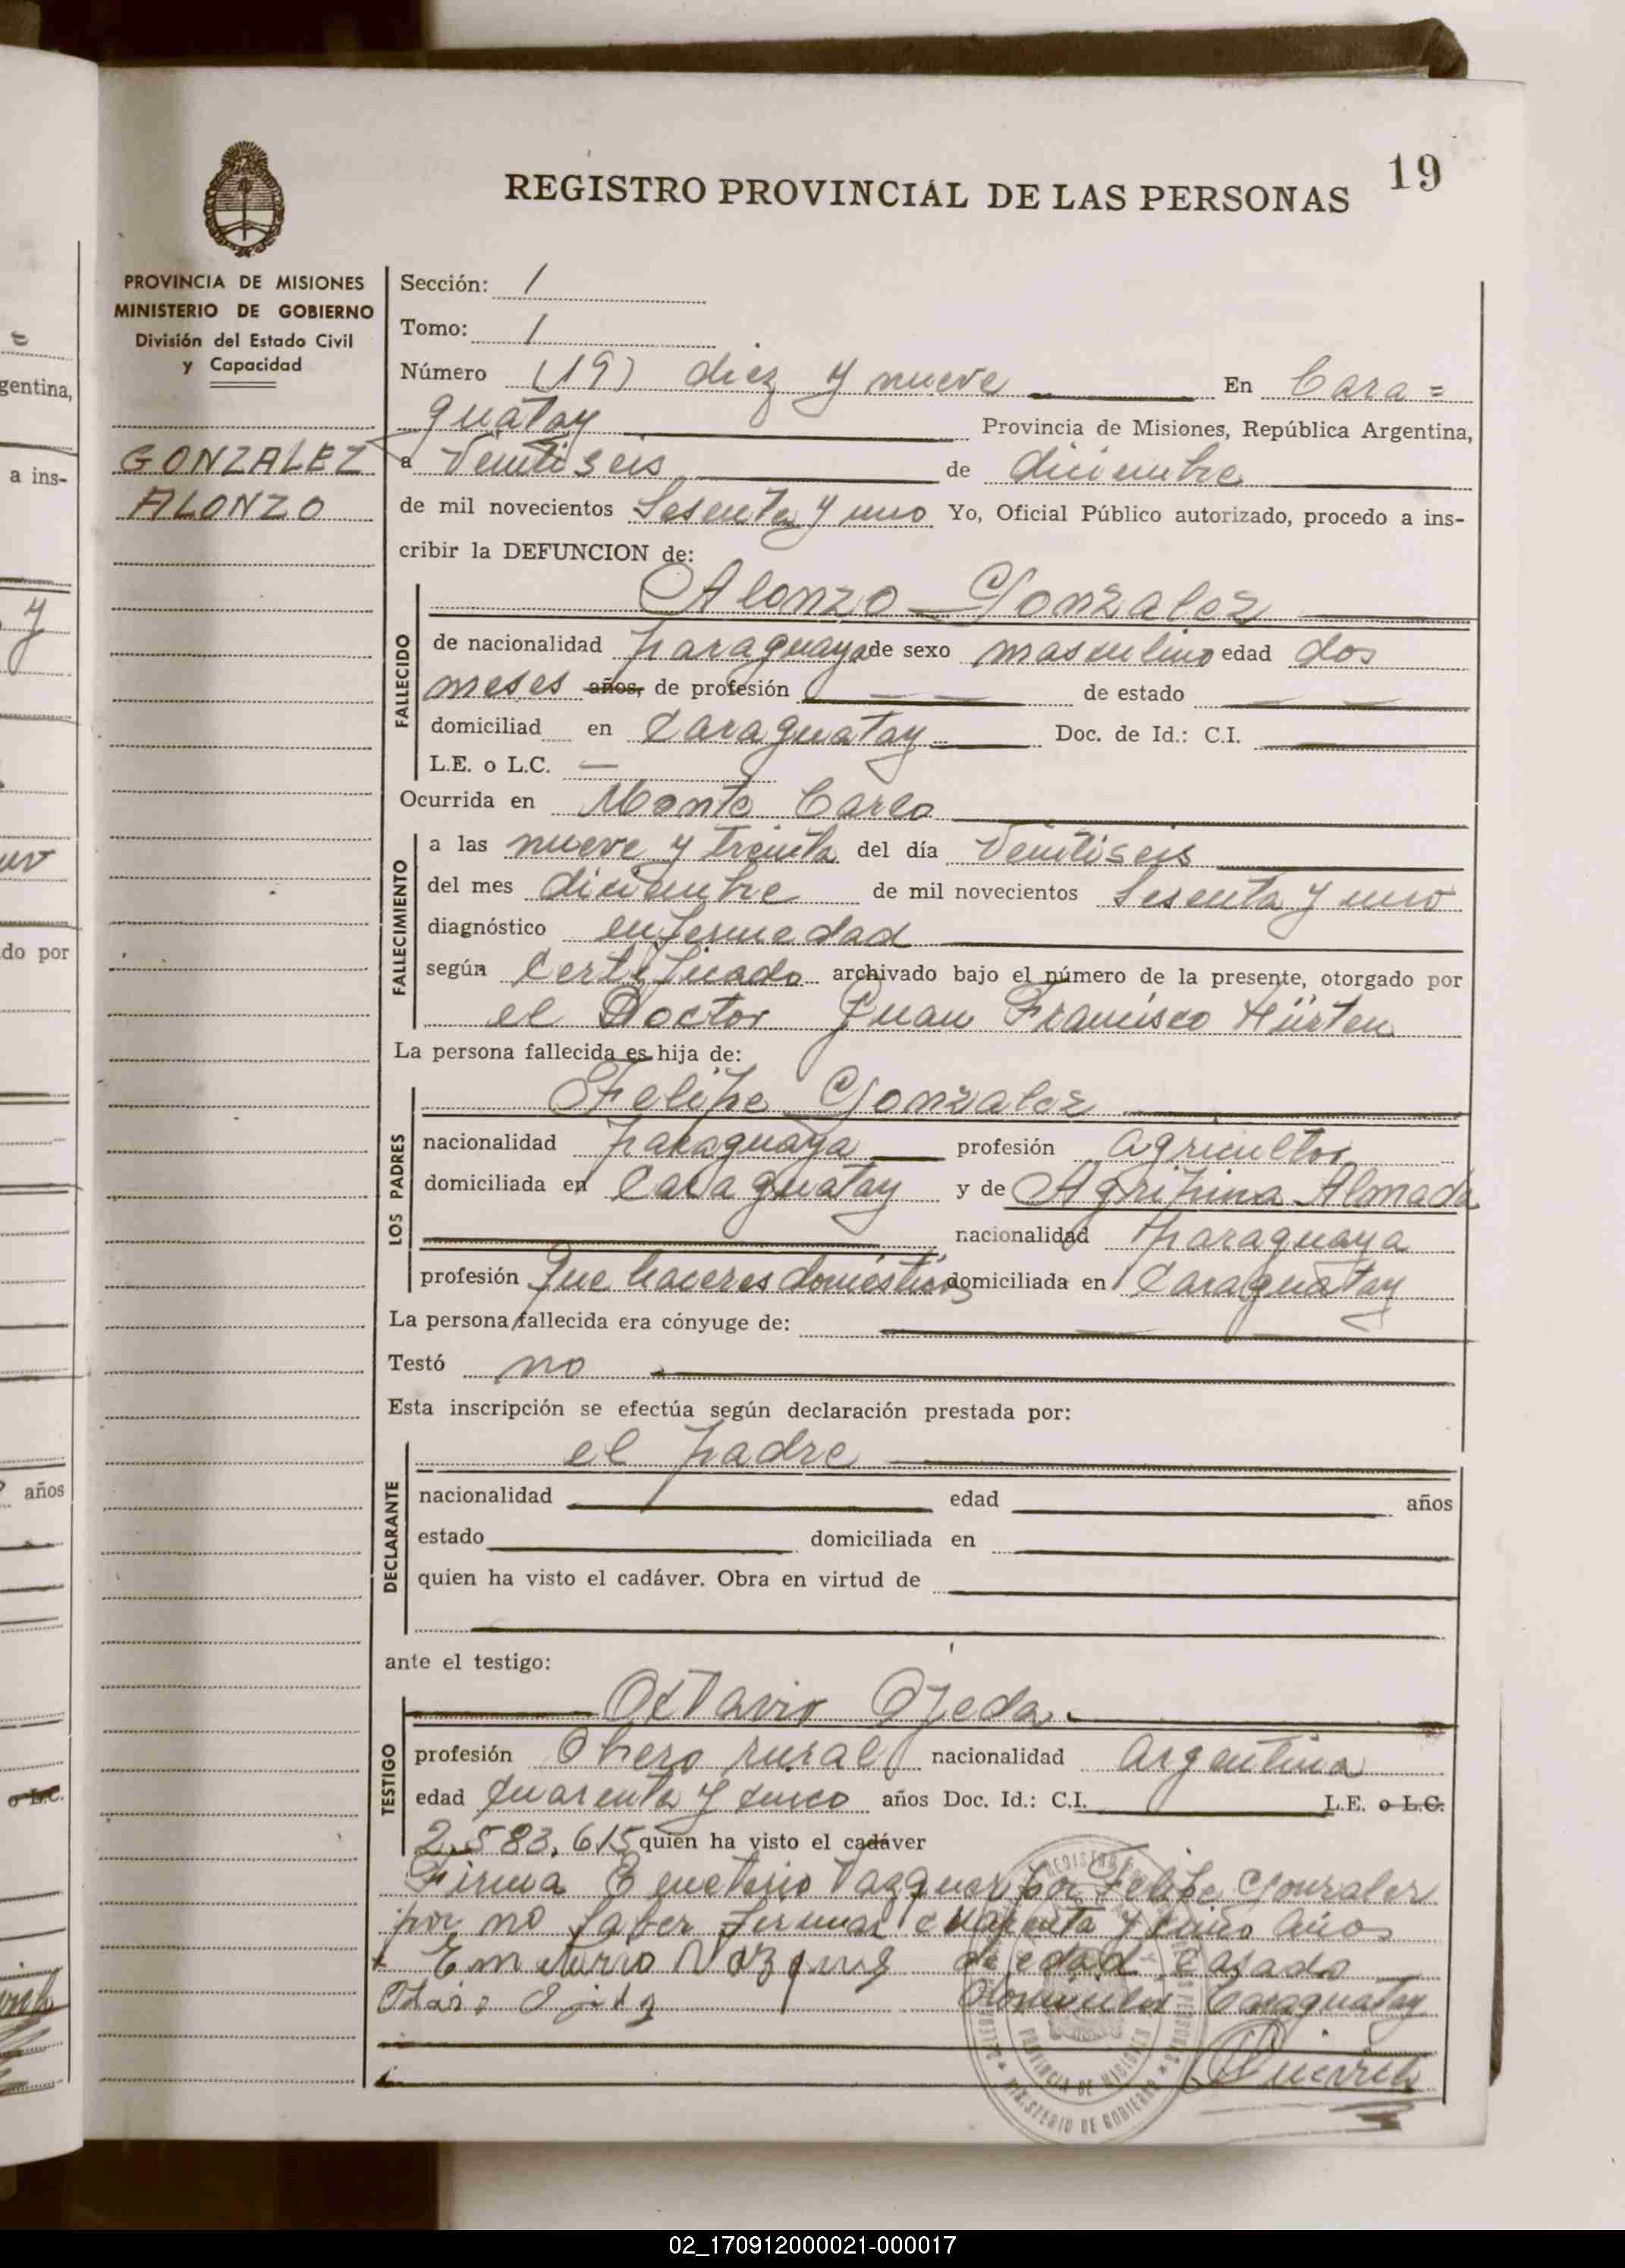 19
REGISTRO PROVINCIAL DE LAS PERSONAS
PROVINCIA DE MISIONES
MINISTERIO DE GOBIERNO
División del Estado Civil
y Capacidad
GONZALEZ
ALONZO
Sección: 1
Tomo: 1
Número (19) diez y nueve En Cara=
guatay Provincia de Misiones, República Argentina,
a Veintiseis de diciembre
de mil novecientos Sesenta y uno Yo, Oficial Público autorizado, procedo a ins-
cribir la DEFUNCION de:
Alonzo Gonzalez
FALLECIDO
de nacionalidad paraguaya de sexo masculino edad dos
meses años, de profesión de estado
domiciliad en Caraguatay Doc. de Id.: C.I.
L.E. o L.C. —
Ocurrida en Monte Carlo
FALLECIMIENTO
a las nueve y treinta del día Veintiseis
del mes diciembre de mil novecientos Sesenta y uno
diagnóstico enfermedad
según Certificado archivado bajo el número de la presente, otorgado por
el Doctor Juan Francisco Hürten
La persona fallecida es hija de:
Felipe Gonzalez
LOS PADRES
nacionalidad paraguaya profesión agricultor
domiciliada en Caraguatay y de Agripina Almada
nacionalidad paraguaya
profesión Que haceres domésticos domiciliada en Caraguatay
La persona fallecida era cónyuge de:
Testó no
Esta inscripción se efectúa según declaración prestada por:
el padre
DECLARANTE
nacionalidad edad años
estado domiciliada en
quien ha visto el cadáver. Obra en virtud de
ante el testigo:
Octavio Ojeda
TESTIGO
profesión Obrero rural nacionalidad argentina
edad Cuarenta y cinco años Doc. Id.: C.I. L.E. o L.C.
2.583.615 quien ha visto el cadáver
Firma Emeterio Vazquez por Felipe Gonzalez
por no saber firmar cuarenta y cinco años
Emeterio Vazquez de edad casado
Ojeda Caraguatay
PROVINCIA DE MISIONES
MINISTERIO DE GOBIERNO
gentina,
a ins-
y
do por
años
o L.C.
02_170912000021-000017